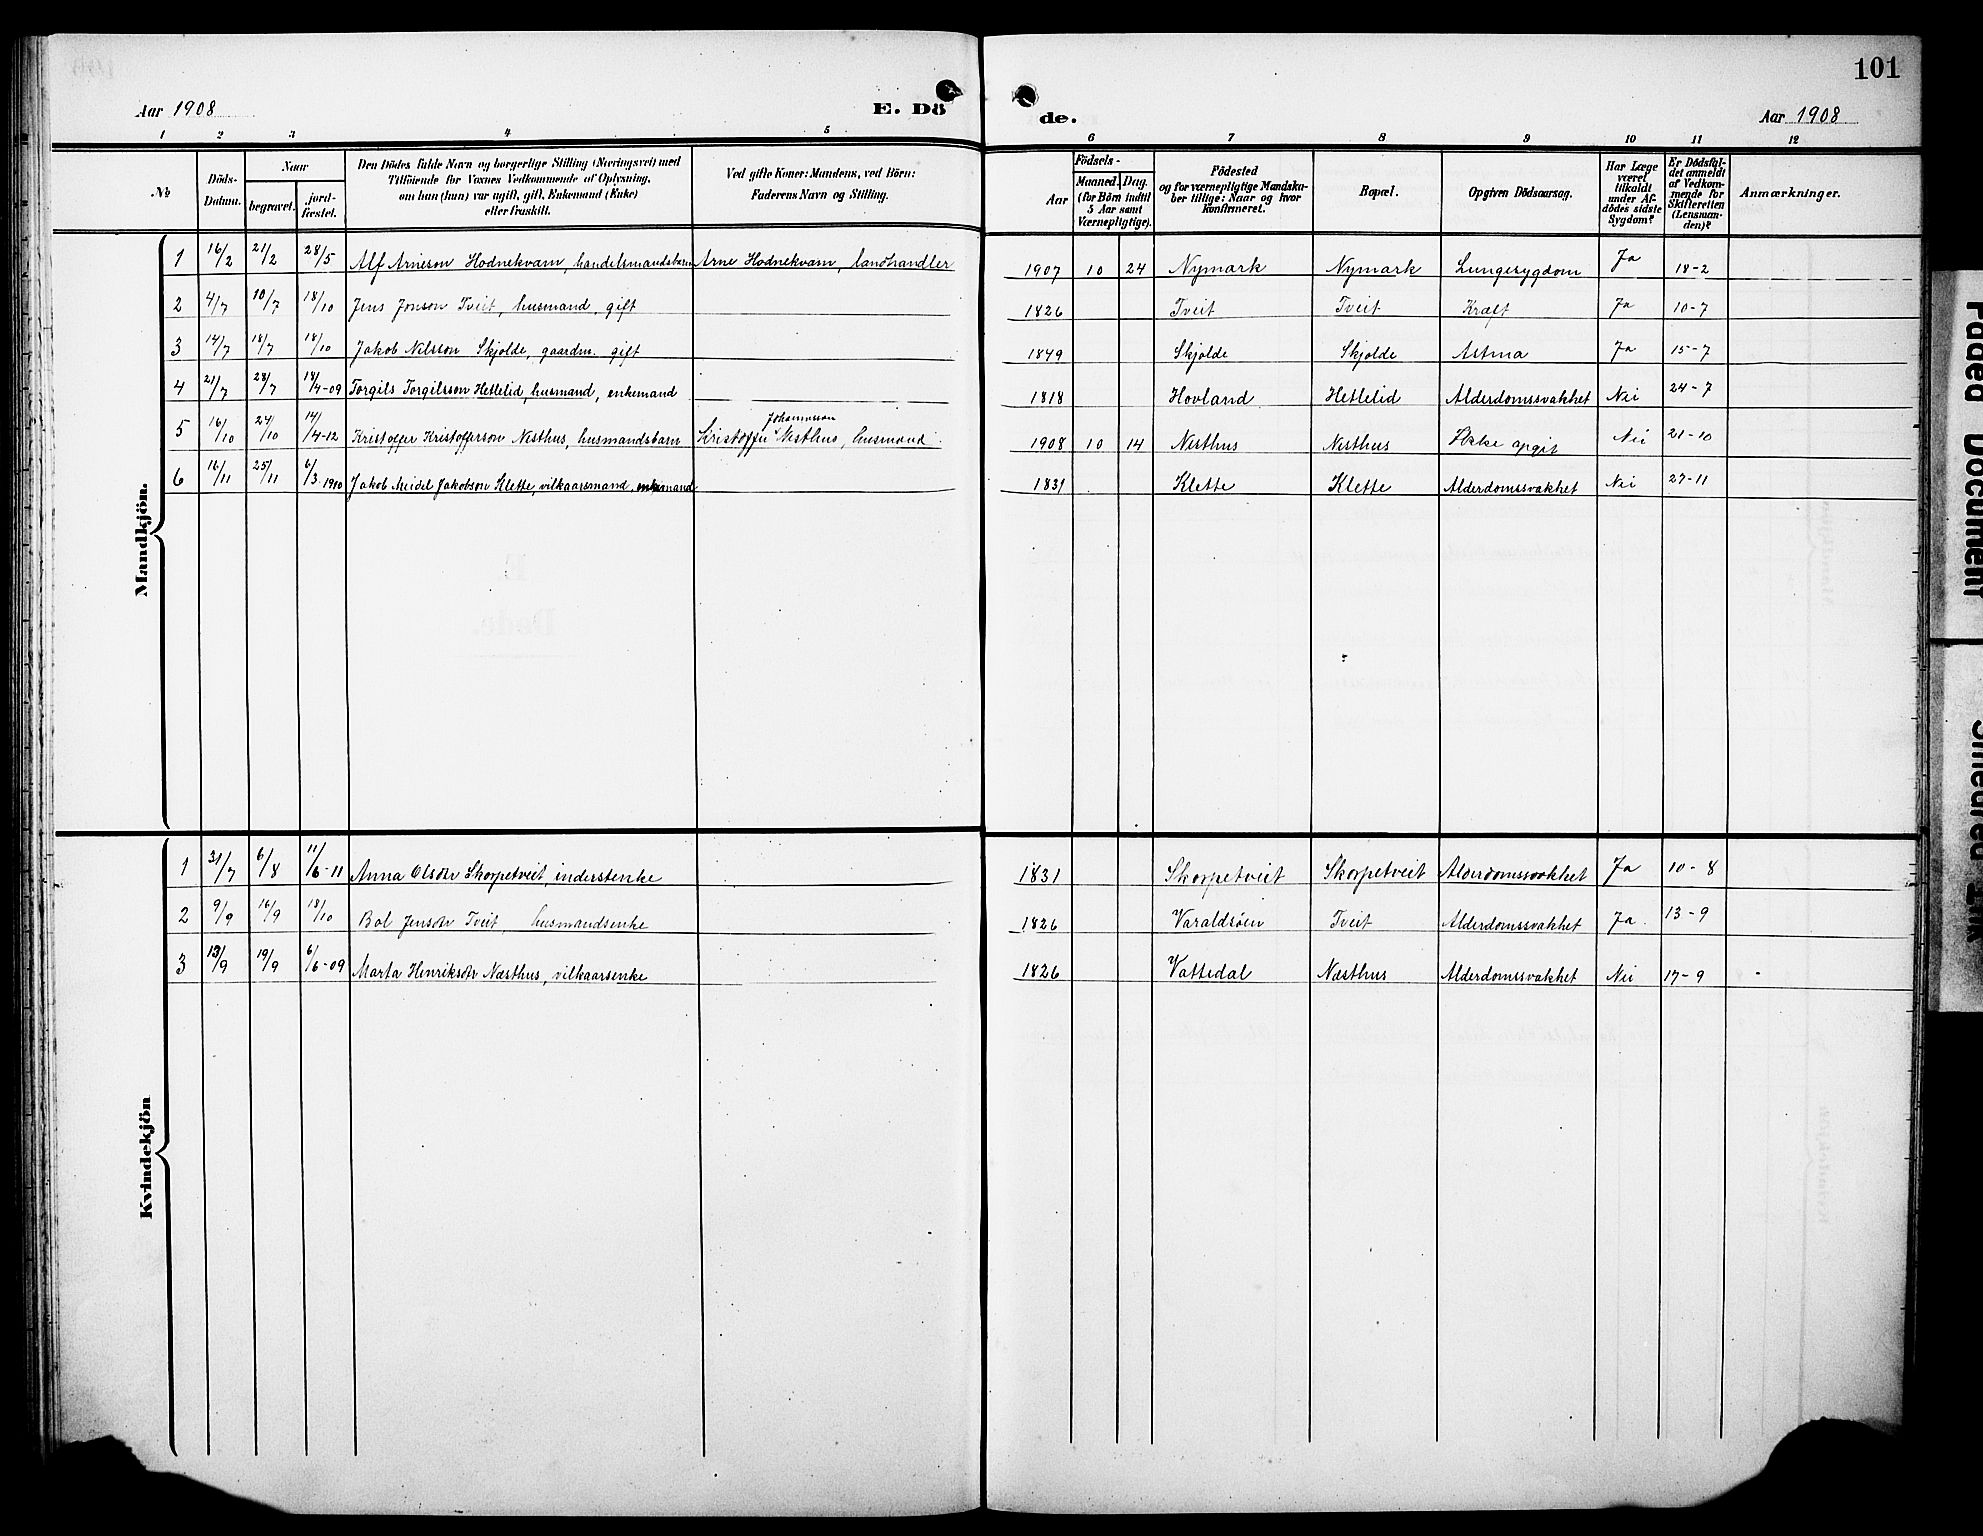 101
Aar 1908 E. Dö de. Aar 1908
1 2 3 4 5 6 7 8 9 10 11 12
No
Döds-
Datum.
Naar
begravet.
jord-
fæstet.
Den Dödes fulde Navn og borgerlige Stilling (Næringsvei) med
Tilföiende for Voxnes Vedkommende af Oplysning,
om han (hun) var ugift, gift, Enkemand (Enke)
eller fraskilt.
Ved gifte Koner: Mandens, ved Börn:
Faderens Navn og Stilling.
Födsels-
Aar
Maaned. Dag.
(for Börn indtil
5 Aar samt
Værnepligtige).
Födested
og for værnepligtige Mandska-
ber tillige: Naar og hvor
Konfirmeret.
Bopæl.
Opgiven Dödsaarsag.
Har Læge
været
tilkaldt
under Af-
dödes sidste
Sygdom?
Er Dödsfal-
det anmeldt
af Vedkom-
mende for
Skifteretten
(Lensman-
den)?
Anmærkninger.
Mandkjön.
1 16/2 21/2 28/5 Alf Arneson Hodnekvam, handelsmandsbarn Arne Hodnekvam, landhandler 1907 10 24 Nymark Nymark Lungesygdom Ja 18-2
2 4/7 10/7 18/10 Jens Jonson Tveit, husmand, gift 1826 Tveit Tveit Kræft Ja 10-7
3 14/7 18/7 18/10 Jakob Nilsson Skjolde, gaardm. gift 1849 Skjolde Skjolde Astma Ja 15-7
4 21/7 28/7 18/4-09 Torgils Torgilsson Hetlelid, husmand, enkemand 1818 Hovland Hetlelid Alderdomssvakhet Nei 24-7
Johannesson
5 16/10 24/10 14/4-12 Kristoffer Kristofferson Nesthus, husmandsbarn Kristoffer Nesthus, husmand 1908 10 14 Nesthus Nesthus Ikke opgit Nei 21-10
6 16/11 25/11 6/3 1910 Jakob Meidel Jakobson Klette, vilkaarsmand, enkemand 1831 Klette Klette Alderdomssvakhet Nei 27-11
Kvindekjön
1 31/7 6/8 11/6-11 Anna Olsdtr Skorpetveit, inderstenke 1831 Skorpetveit Skorpetveit Alderdomssvakhet Ja 10-8
2 9/9 16/9 18/10 Bol Jensdtr Tveit, husmandsenke 1826 Varaldsöen Tveit Alderdomssvakhet Ja 13-9
3 13/9 19/9 6/6-09 Marta Henriksdtr Næsthus, vilkaarsenke 1826 Vattedal Næsthus Alderdomssvakhet Nei 17-9
Faded Document